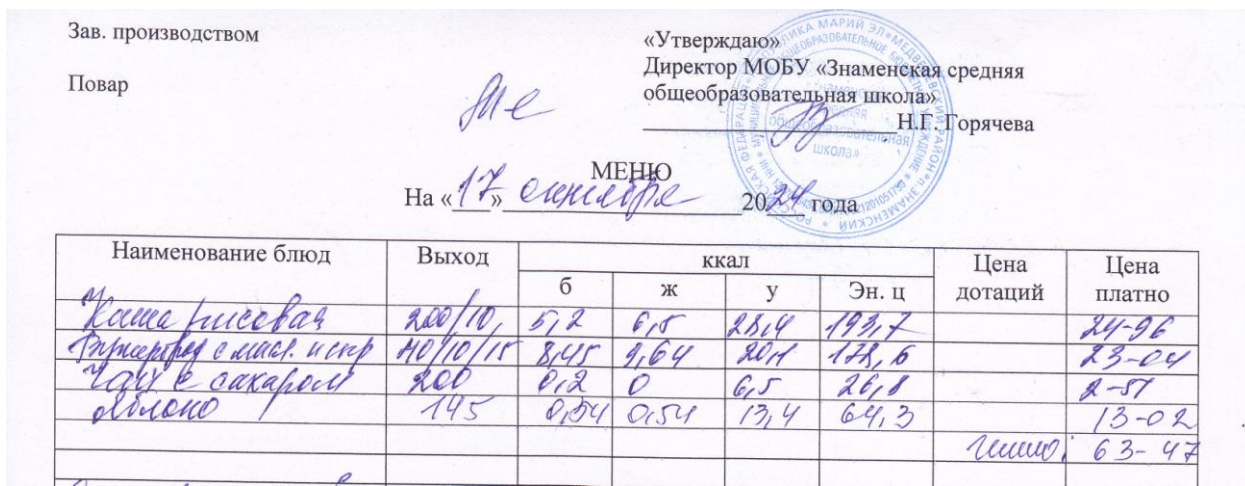 Зав. производством
«Утверждаю»
Директор МОБУ «Знаменская средняя
Повар
общеобразовательная школа»
Н.Г. Горячева
МЕНЮ
На «17» октября 2024 года
Наименование блюд Выход ккал Цена дотаций Цена платно
б ж у Эн. ц
Каша рисовая 200/10, 5,2 6,5 28,4 193,7 24-96
Бутерброд с масл. и сыр 40/10/15 8,45 9,64 20,1 178,6 23-04
Чай с сахаром 200 0,2 0 6,5 26,8 2-51
Яблоко 145 0,54 0,54 13,4 64,3 13-02
63-47